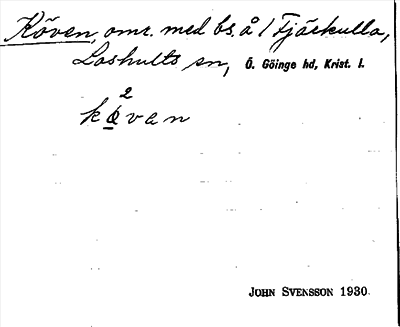 Köven, omr. med bs. å 1 Fjärkulla,
Loshults sn, Ö. Göinge hd, Krist. l.
2
kövan
JOHN SVENSSON 1930.